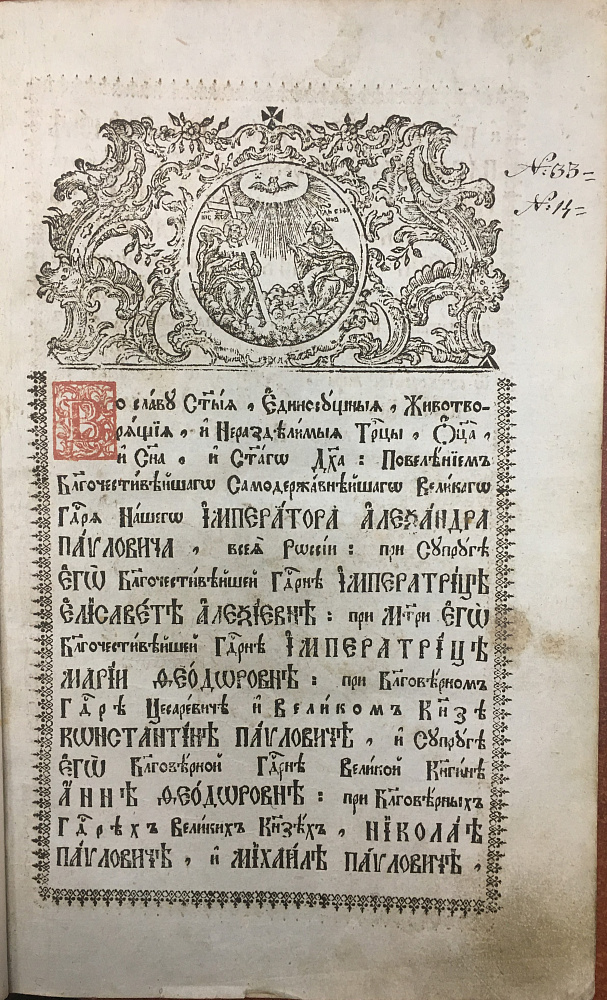 № 33
№ 14
Во славу Ст҃ыѧ , Є҆диносꙋщныѧ , Животво-
рѧщїѧ , и҆ Нераздѣлимыѧ Трⷪ҇цы , Ѻ҆ц҃а ,
и҆ Сн҃а , и҆ Ст҃а́гѡ Дх҃а : Повелѣ́нїемъ
Бл҃гочести́вѣйшагѡ Самодержа́внѣйшагѡ Вели́кагѡ
Гдⷭ҇рѧ На́шегѡ І҆МПЕРА́ТОРА А҆ЛЕѮА́НДРА
ПА́ѴЛОВИЧА , всеѧ̀ Рѡссі́и : при Сꙋпрꙋ́гѣ
Є҆ГѠ̀ Бл҃гочести́вѣйшей Гдⷭ҇рнѣ І҆МПЕРАТРИ́ЦѢ
Є҆ЛІСАВЕ́ТѢ А҆ЛЕѮІ́ЕВНѢ : при М҃три Є҆ГѠ̀
Бл҃гочести́вѣйшей Гдⷭ҇рнѣ І҆МПЕРАТРИ́ЦѢ
МАРІ́И Ѳ҆ЕО́ДѠРОВНѢ : при Бл҃говѣ́рномъ
Гдⷭ҇рѣ Цесаревичѣ и҆ Вели́комъ Кн҃зѣ
КѠНСТАНТІ́НѢ ПА́ѴЛОВИЧѢ , и҆ Сꙋпрꙋ́гѣ
Є҆ГѠ̀ Бл҃говѣ́рной Гдⷭ҇рнѣ Вели́кой Кн҃ги́нѣ
А҆́ННѢ Ѳ҆ЕО́ДѠРОВНѢ : при Бл҃говѣ́рныхъ
Гдⷭ҇рѣхъ Вели́кихъ Кн҃зѣ́хъ , НІКОЛА́Ѣ
ПА́ѴЛОВИЧѢ , и҆ МІХАИ́ЛѢ ПА́ѴЛОВИЧѢ ,